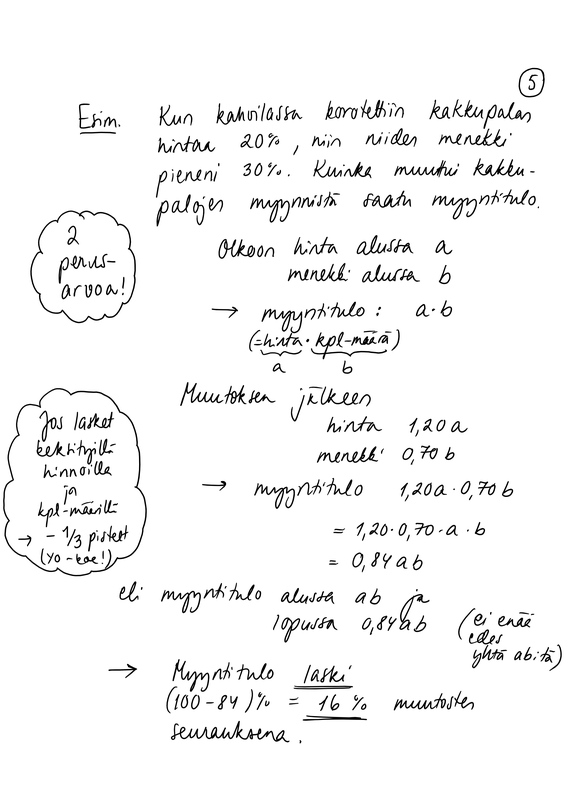 5
Esim. Kun kahvilassa korotettiin kakkupalan
hintaa 20%, niin niiden menekki
pieneni 30%. Kuinka muuttui kakku-
palojen myynnistä saatu myyntitulo.
2
perus-
arvoa!
Olkoon hinta alussa a
menekki alussa b
→ myyntitulo : a·b
(=hinta · kpl-määrä)
a b
Muutoksen jälkeen
hinta 1,20a
menekki 0,70b
Jos lasket
keksityillä
hinnoilla
ja
kpl-määrillä
→ - 1/3 pisteet
(yo-koe!)
→ myyntitulo 1,20a · 0,70b
= 1,20·0,70·a·b
= 0,84ab
eli myyntitulo alussa ab ja
lopussa 0,84ab
(ei enää
edes
yhtä abitä)
→ Myyntitulo laski
(100-84)% = 16 % muutosten
seurauksena.